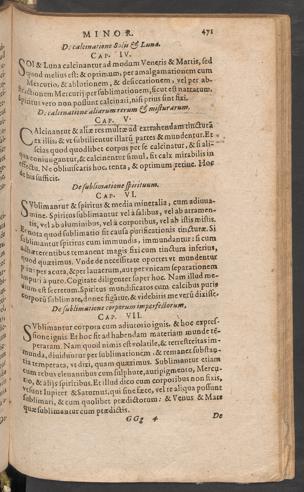 MINOR. 471
D: calcinatione Solis & Lunæ.
CAP. IV.
SOl & Luna calcinantur ad modum Veneris & Martis, sed
quod melius est: & optimum, per amalgamationem cum
Mercurio, & ablutionem, & desiccationem, vel per ab-
stractionem Mercurij per sublimationem, sicut est natratum.
Spiritus vero non possunt calcinari, nisi prius sint fixi.
D: calcinatione aliarum rerum & misturarum.
CAP. V.
CAlcinantur & aliæ res multæ ad extrahendam tincturã
ex illis, & vt subtilientur illarũ partes & mundentur. Et
scias quod quodlibet corpus per se calcinatur, & si ali-
qua coniungantur, & calcinentur simul, fit calx mirabilis in
effectu. Ne obliuiscaris hoc, tenta, & optimum retine. Hoc
de his sufficit.
De sublimatione spirituum.
CAP. VI.
SVblimantur & spiritus & media mineralia, cum adiuua-
mine. Spiritus sublimantur vel à salibus, vel ab atramen-
tis, vel ab aluminibus, vel à corporibus, vel ab istis mistis.
Et nota quod sublimatio fit causa purificationis tincturæ. Si
sublimantur spiritus cum immundis, immundantur: si cum
adhærentibus
quod quærimus. Vnde de necessitate oportet vt mundentur
prius per acuta, & per lauacrum, aut per vnicam separationem
impuri à puro. Cogitate diligenter super hoc. Nam illud me-
dium est secretum. Spiritus mundificatos cum calcibus putis
corporũ sublimate, donec figãtur, & videbitis me verũ dixisse.
De sublimatione corporum imperfectorum,
CAP. VII.
SVblimantur corpora cum adiutorio ignis, & hoc expres-
sione ignis. Et hoc fit ad habendam materiam mundam &
temperatam. Nam quod nimis est volatile, & terrestreitas im-
munda, diuiduntur per sublimationem: & remanet substan-
tia temperata, vt dixi, quam quærimus. Sublimantur etiam
cum rebus eleuantibus cum sulphure, auripigmento, Mercu-
rio, & alijs spiritibus. Et illud dico cum corporibus non fixis,
vt sunt Iupiter & Saturnus, qui sine fæce, vel re aliqua possunt
sublimari, & cum quolibet prædictorum: & Venus & Mars
quæ sublimantur cum prædictis.
GGg 4 De